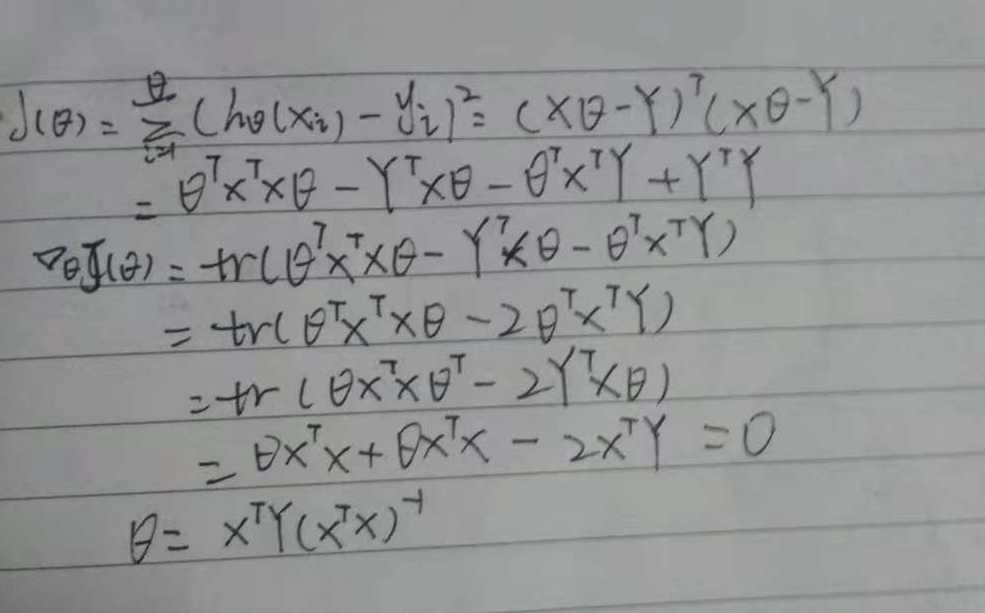 J(θ) = Σ_{i=1}^{θ} (hθ(xi) - yi)² = (Xθ-Y)ᵀ(Xθ-Y)
= θᵀXᵀXθ - YᵀXθ - θᵀXᵀY + YᵀY
∇θJ(θ) = tr(θᵀXᵀXθ - YᵀXθ - θᵀXᵀY)
= tr(θᵀXᵀXθ - 2θᵀXᵀY)
= tr(θXᵀXθᵀ - 2YᵀXθ)
= θXᵀX + θXᵀX - 2XᵀY = 0
θ = XᵀY(XᵀX)⁻¹